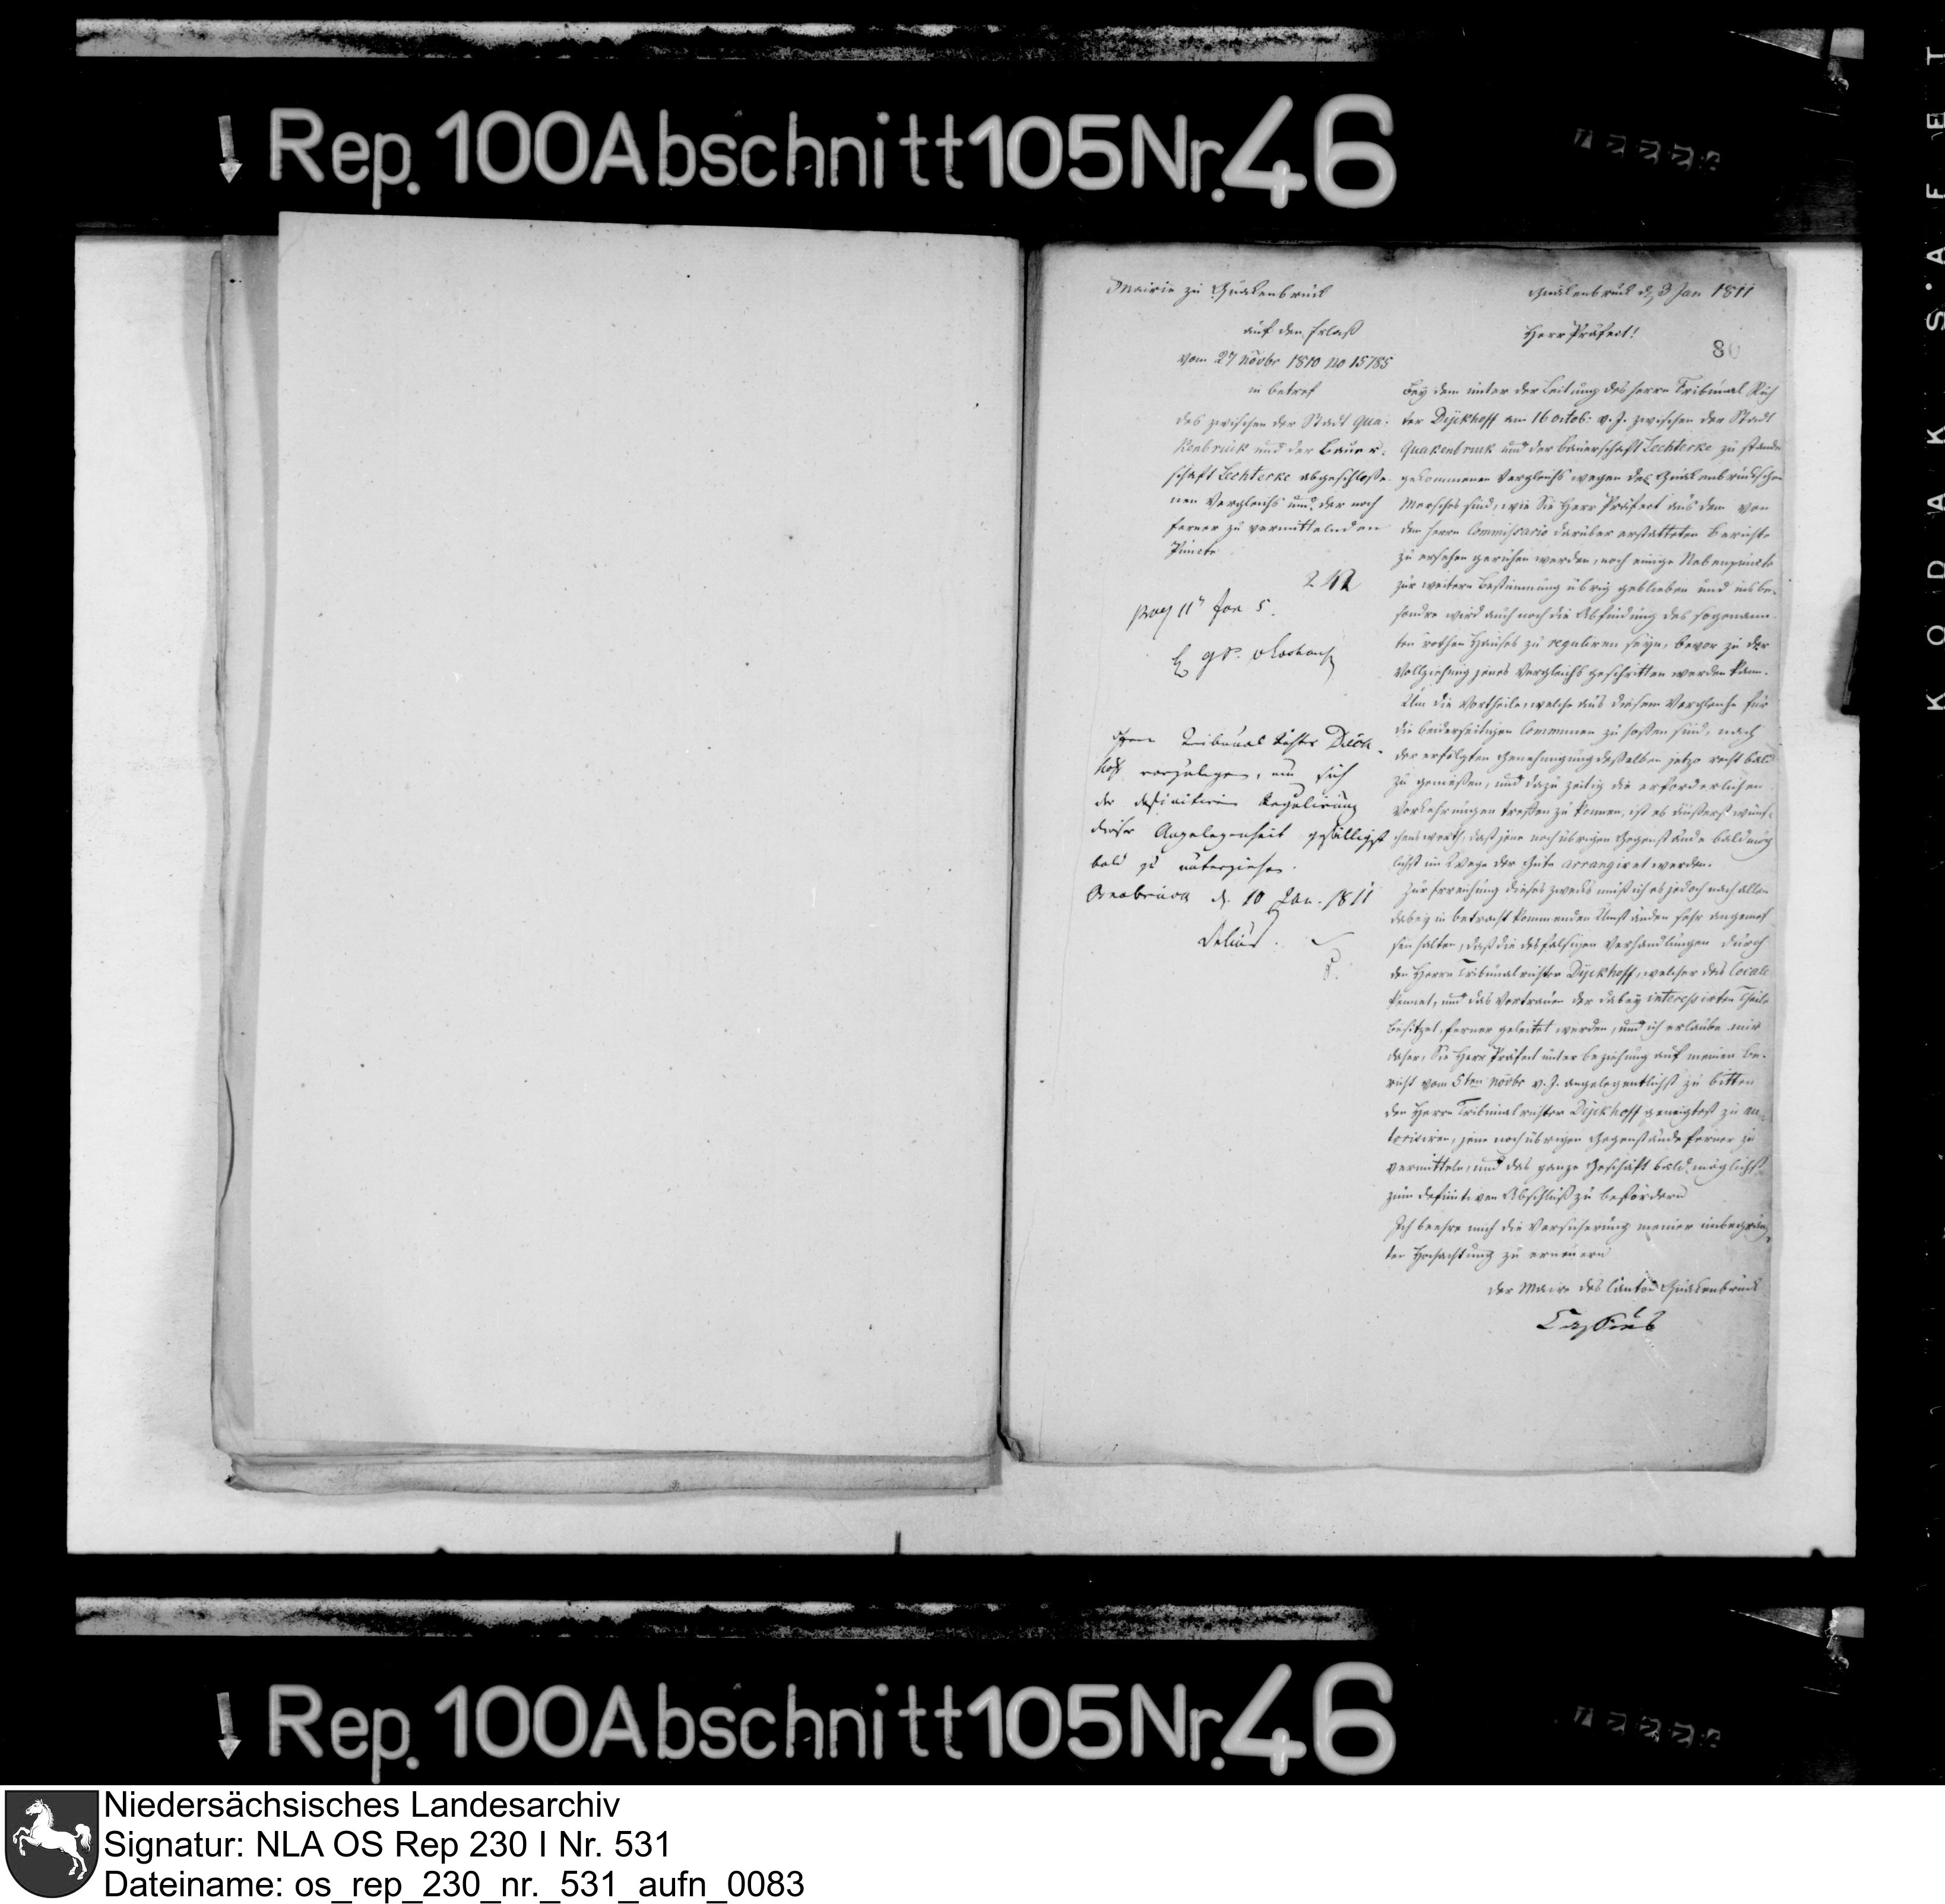 Rep. 100 Abschnitt 105 Nr. 46
Mairie zu Quakenbrück
auf den Erlaß
vom 27 Novbr 1810 no 15785
in betref
des zwischen der Stadt Qua-
kenbrück und der Bauer-
schaft Lechterke abgeschloße-
nen Vergleichs und der noch
ferner zu vermittelnden
Puncte
242
Herrn Tribunal Richter Dück-
hoff vorzulegen, um sich
der definitiven Regulirung
dieser Angelegenheit gefälligst
bald zu unterziehen.
Osnabrück d. 10 Jan. 1811
Delius.
Quakenbrück d. 3 Jan 1811
Herr Präfect!
80
Bey dem unter der Leitung des Herrn Tribunal Rich
ter Dyckhoff am 16 octob: v. J. zwischen der Stadt
Quakenbruck und der Bauerschaft Lechterke zu stande
gekommenen Vergleichs wegen des Quakenbrückschen
Mersches sind, wie Sie Herr Präfect aus dem von
dem Herrn Commissario darüber erstatteten Berichte
zu ersehen geruhen werden, noch einige Nebenpunkte
zur weitern Bestimmung übrig geblieben und insbe-
sondre wird auch noch die Abfindung des sogenann
ten rothen Hauses zu reguliren seyn, bevor zu der
Vollziehung jenes Vergleichs geschritten werden kann.
Um die Vortheile, welche aus diesem Vergleiche für
die beiderseitigen Communen zu hoffen sind, nach
der erfolgten Genehmigung deßelben jetzo recht bald
zu genießen, und dazu zeitig die erforderlichen
Vorkehrungen treffen zu können, ist es äußerst wüns-
chenswerth, daß jene noch übrigen Gegenstände baldmög
lichst im Wege der Güte arrangiret werden.
Zur Erreichung dieses Zwecks muß ich es jedoch nach allen
dabey in betracht kommenden Umständen sehr angemes
sen halten, daß die desfalsigen Verhandlungen durch
den Herrn Tribunalrichter Dyckhoff, welcher das Locale
kennet, und das Vertrauen der dabey interessirten Theile
besitzet, ferner geleitet werden, und ich erlaube mir
daher, Sie Herr Präfect unter beziehung auf meinen Be-
richt vom 5ten Novbr v. J. angelegentlichst zu bitten
den Herrn Tribunalrichter Dyckhoff geneigtest zu au-
torisiren, jene noch übrigen Gegenstände ferner zu
vermitteln, und das ganze Geschäft bald möglichst
zum definitiven Abschluß zu befördern
Ich beehre mich die Versicherung meiner unbegränz-
ten Hochachtung zu erneuern
der Maire des Canton Quakenbrück
Rep. 100 Abschnitt 105 Nr. 46
KODAK·SAFET
Niedersächsisches Landesarchiv
Signatur: NLA OS Rep 230 I Nr. 531
Dateiname: os_rep_230_nr._531_aufn_0083